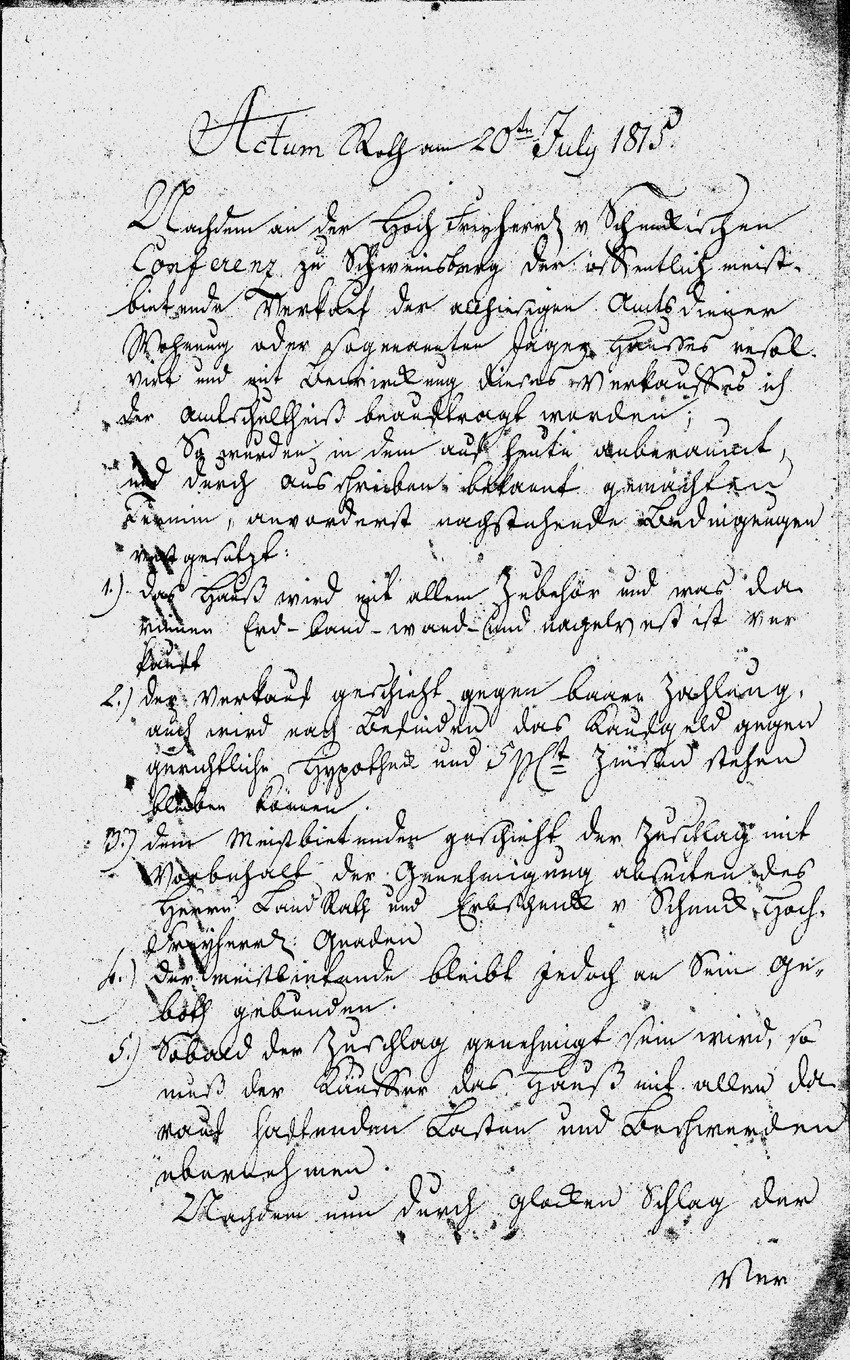 Actum Roth am 20ten July 1815.
Nachdem an der Hoch Freyherrl v Schenckischen
Conferenz zu Schweinsberg der öffentlich meist-
bietende Verkauf der alhiesigen Amtsdiener
Wohnung oder sogenannten Jäger Hausses resol-
virt und mit Bewirckung dieses Verkauffes ich
der Amtschultheiß beauftragt worden;
So wurden in dem auf heute anberaumt,
und durch ausschreiben bekannt gemachten
Termin, anvorderst nachstehende Bedingungen
vest gesetzt:
1.) das Hauß wird mit allem Zubehör und was da
rinnen Erd- band- wand- und nagelvest ist ver
kauft
2.) der Verkauf geschieht gegen baare Zahlung,
auch wird nach Befinden das Kaufgeld gegen
gerichtliche Hypotheck und 5 pCt Zinsen stehen
bleiben können.
3.) dem Meistbietenden geschieht der Zuschlag mit
Vorbehalt der Genehmigung abseiten des
Herrn Land Rath und Erbschenck v Schenck Hoch-
Freyherrl: Gnaden
4.) der meistbietende bleibt jedoch an Sein Ge-
both gebunden.
5.) Sobald der Zuschlag genehmigt sein wird, so
muß der Käuffer das Hauß mit allen da
rauf haftenden Lasten und Beschwerden
übernehmen.
Nachdem nun durch glocken Schlag der
Ver